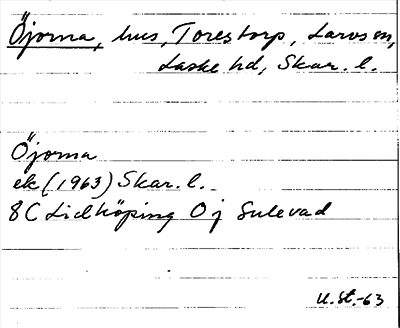 Öjorna, hus, Torestorp, Larvs sn,
Laske hd, Skar. l.
Öjorna
ek (1963) Skar. l.
8C Lidköping 0j Sulevad
U.St.-63